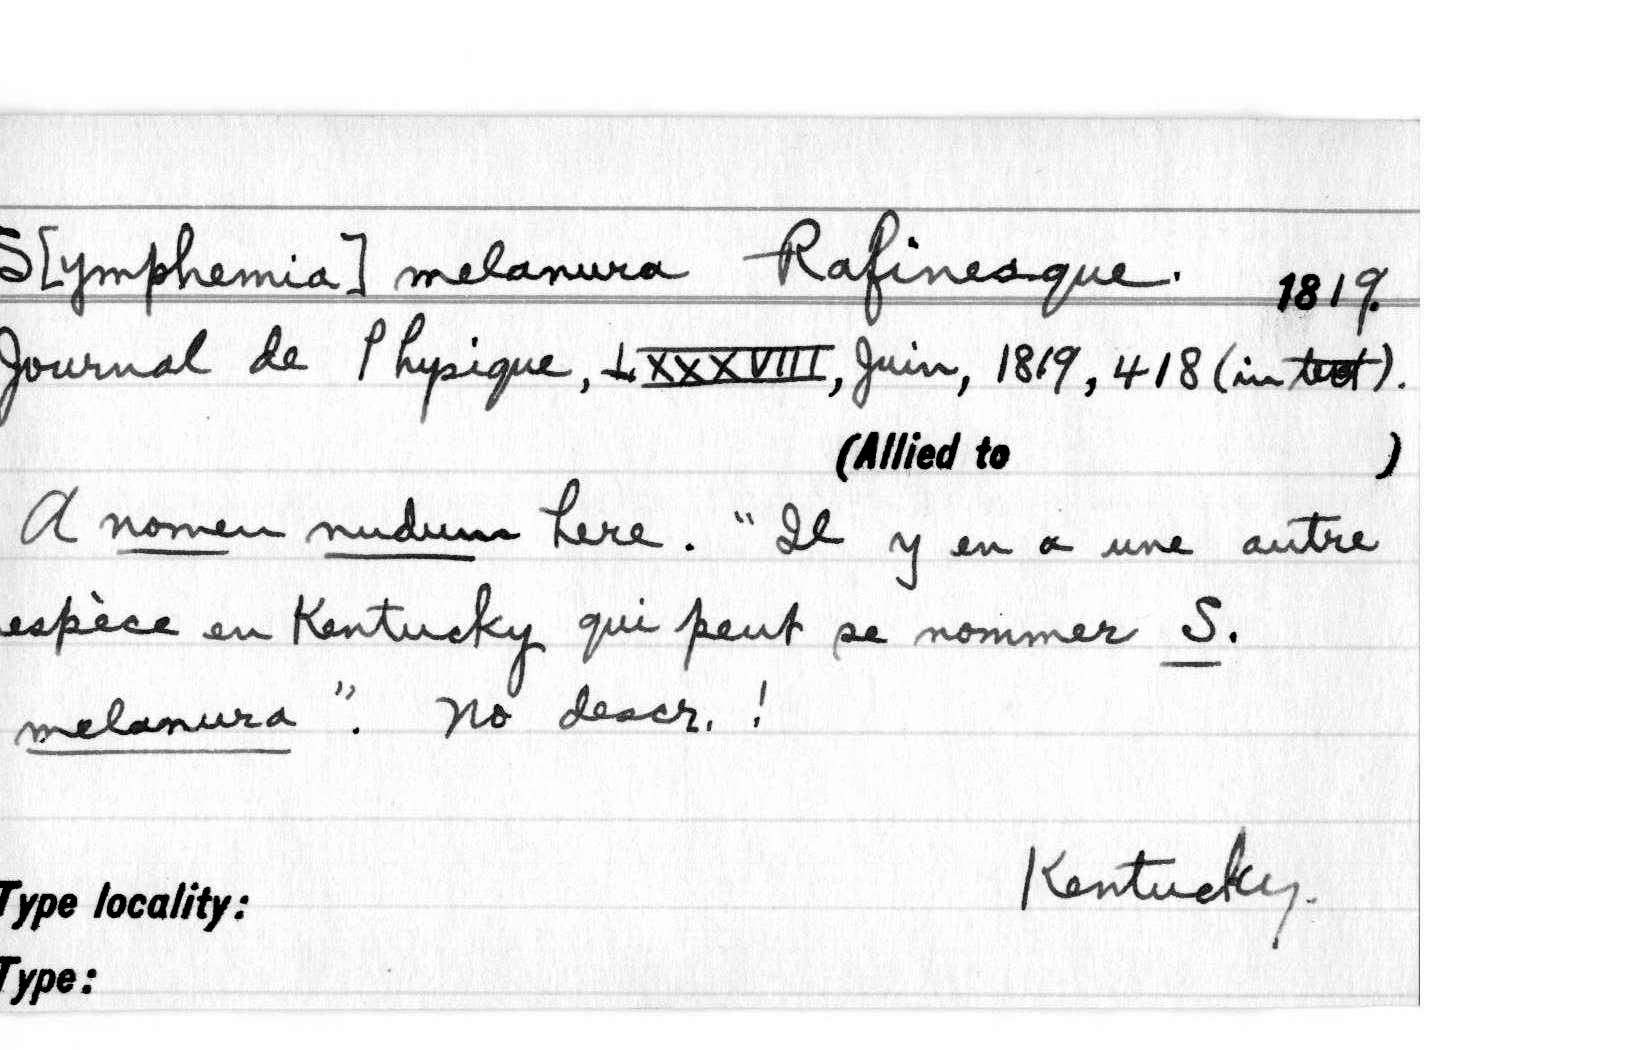 S[ymphemia] melanura Rafinesque. 1819.
Journal de Physique, LXXXVIII, Juin, 1819, 418 (in text).
(Allied to )
A nomen nudum here. "Il y en a une autre
espèce en Kentucky qui peut se nommer S.
melanura". No descr. !
Kentucky.
Type locality:
Type: